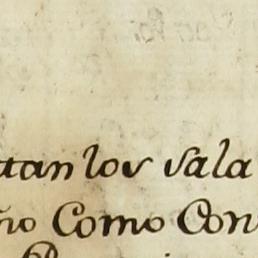 tan los sala
ño Como Con